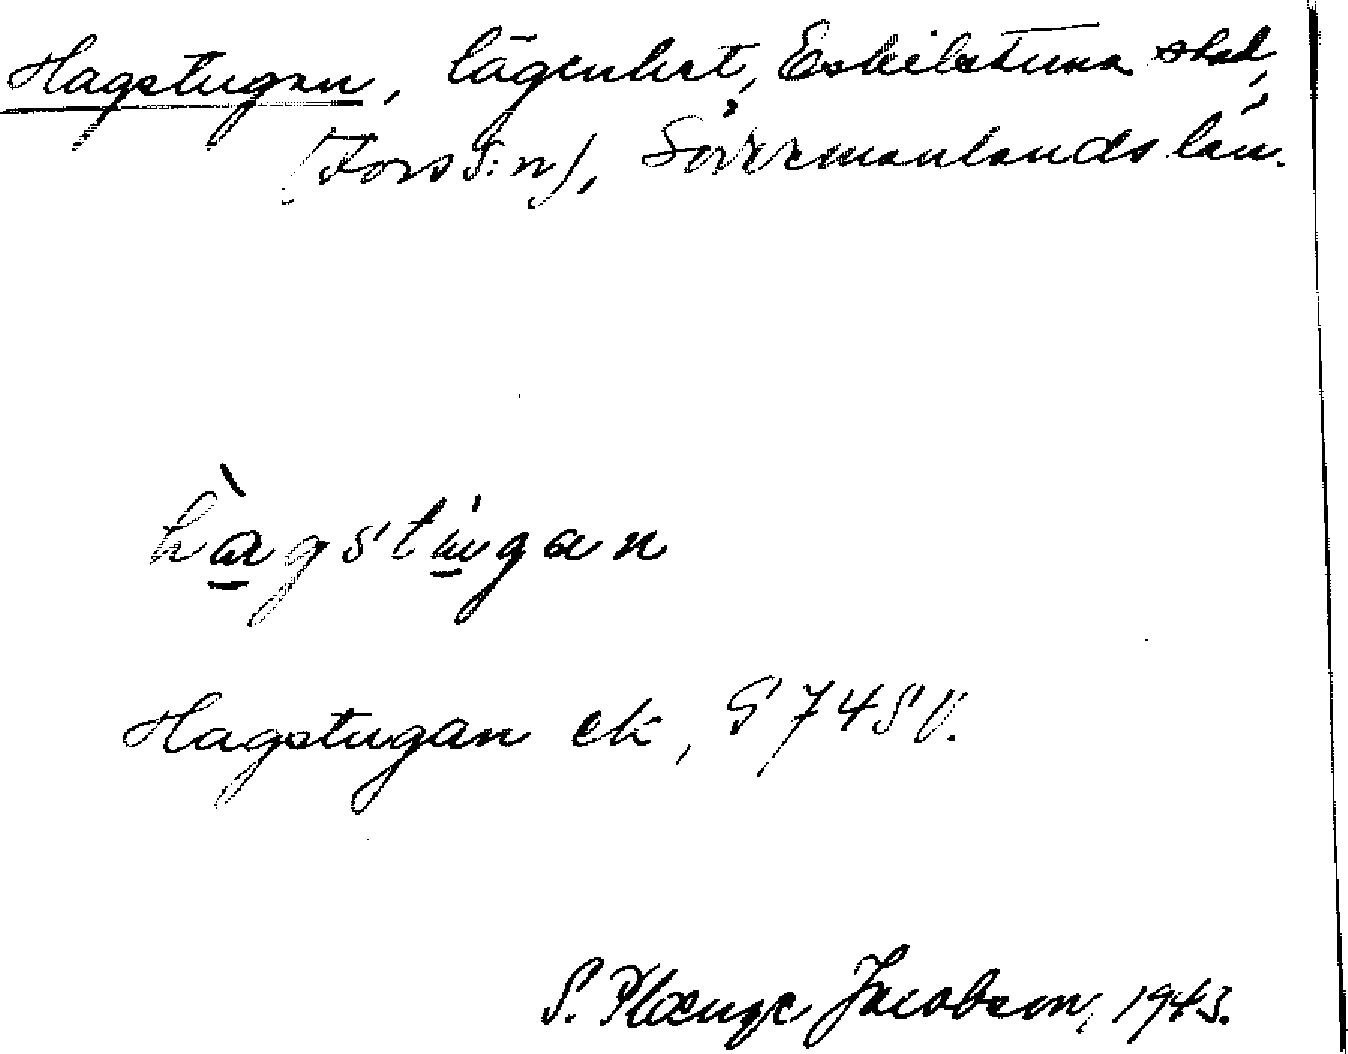 Hagstugan, lägenhet, Eskilstuna stad,
(Fors s:n), Södermanlands län.
hàgstúgan
Hagstugan ek, G 74 SV.
S. Plænge Jacobson, 1943.